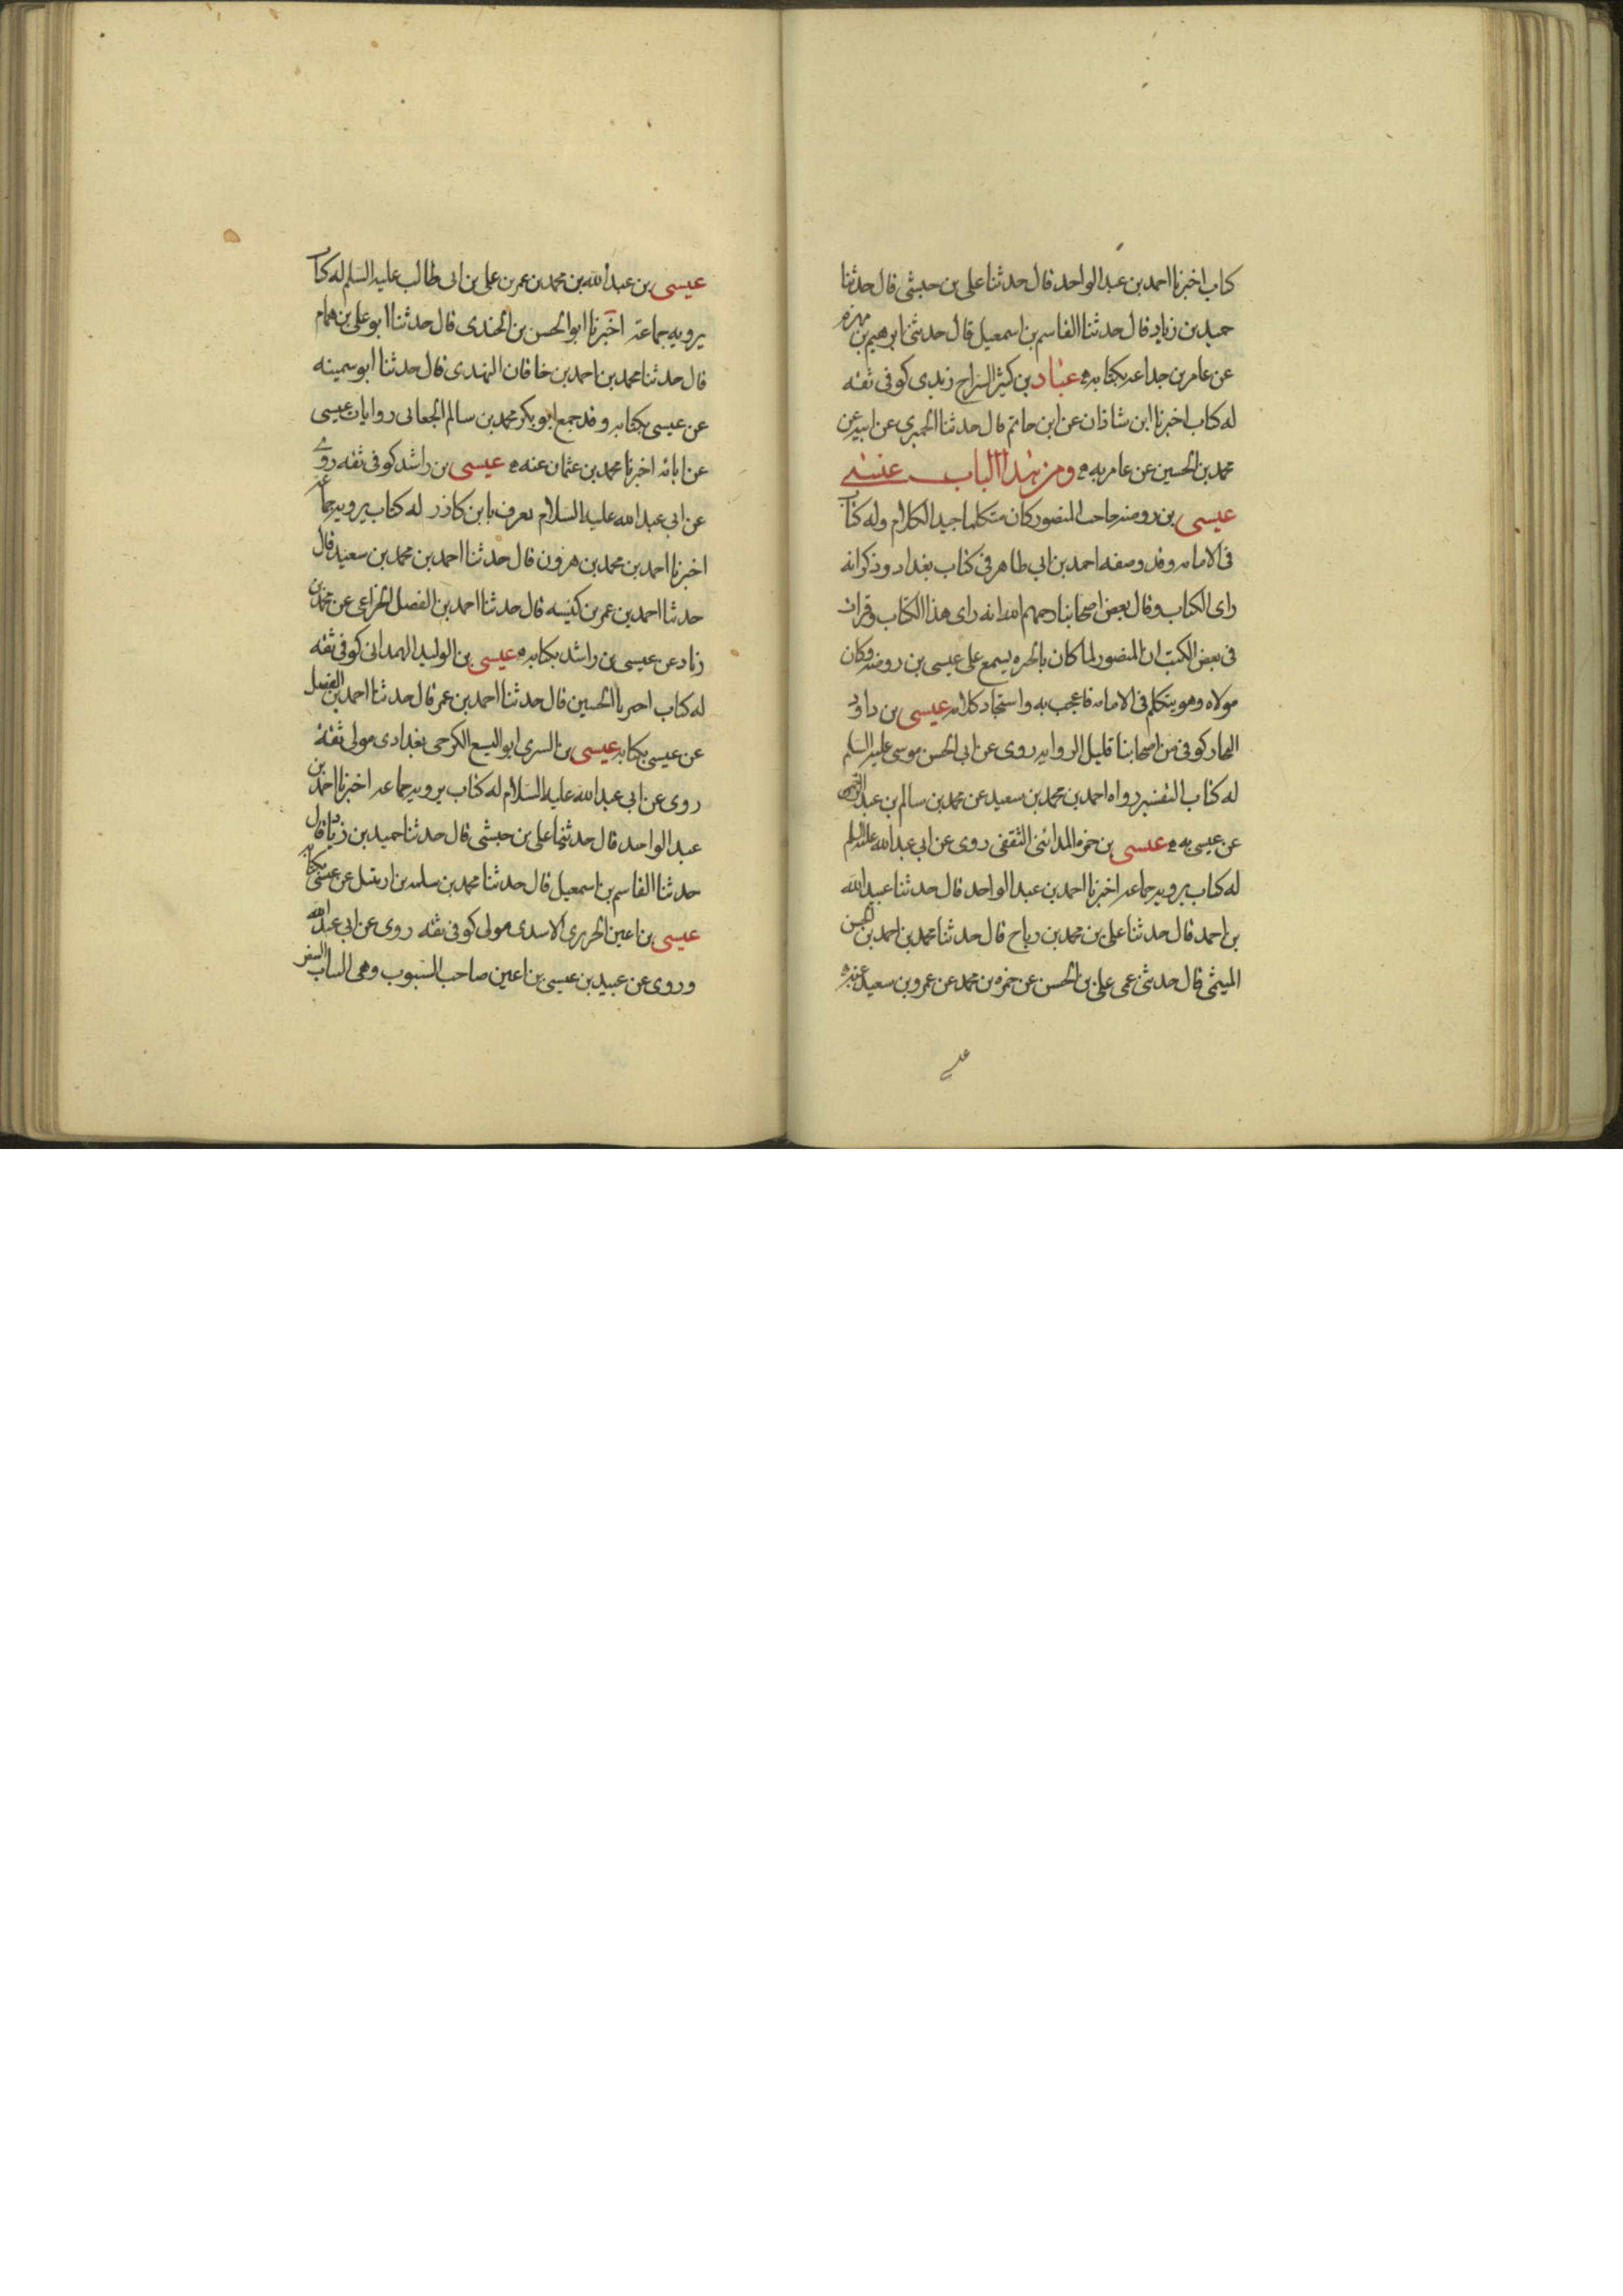 كتاب اخبرنا احمد بن عبد الواحد قال حدثنا على بن حبشى قال حدثنا
حميد بن زياد قال حدثنا القاسم بن اسمعيل قال حدثنى ابرهيم بن مهزم
عن عامر بن جداعه بكتابه عباد بن كثير السراج زيدى كوفى ثقه
له كتاب اخبرنا ابن شاذان عن ابن حاتم قال حدثنا الحميرى عن ابيه عن
محمد بن الحسين عن عامر به ومن هذا الباب عيسى
عيسى بن روضه حاجب المنصور كان متكلما جيد الكلام وله كتاب
فى الامامه وقد وصفه احمد بن ابى طاهر فى كتاب بغداد وذكر انه
راى الكتاب وقال بعض اصحابنا رحمهم الله انه راى هذا الكتاب وقرات
فى بعض الكتب ان المنصور لما كان بالحره يسمع على عيسى بن روضه وكان
مولاه وهو يتكلم فى الامامه فاعجب به واستجاد كلامه عيسى بن داود
النجار كوفى من اصحابنا قليل الروايه روى عن ابى الحسن موسى عليه السلم
له كتاب التفسير رواه احمد بن محمد بن سعيد عن محمد بن سالم بن عبد الرحمن
عن عيسى به عيسى بن حمزه المدائنى الثقفى روى عن ابى عبد الله عليه السلم
له كتاب يرويه جماعه اخبرنا احمد بن عبد الواحد قال حدثنا عبيد الله
بن احمد قال حدثنا على بن محمد بن رباح قال حدثنا محمد بن احمد بن الحسن
الميثمى قال حدثنى عمى على بن الحسن عن حمزه بن محمد عن عمرو بن سعيد عنه
عيسى بن عبد الله بن محمد بن عمر بن على بن ابى طالب عليه السلم له كتاب
يرويه جماعة اخبرنا ابو الحسن بن الجندى قال حدثنا ابو على بن همام
قال حدثنا محمد بن احمد بن خاقان النهدى قال حدثنا ابو سمينه
عن عيسى بكتابه وقد جمع ابو بكر محمد بن سالم الجعابى روايات عيسى
عن ابائه اخبرنا محمد بن عثمان عنه عيسى بن راشد كوفى ثقه روى
عن ابى عبد الله عليه السلام يعرف بابن كازر له كتاب يرويه جماعه
اخبرنا احمد بن محمد بن هرون قال حدثنا احمد بن محمد بن سعيد قال
حدثنا احمد بن عمر بن كيسه قال حدثنا احمد بن الفضل الخزاعى عن محمد بن
زياد عن عيسى بن راشد بكتابه عيسى بن الوليد الهمدانى كوفى ثقه
له كتاب اخبرنا الحسين قال حدثنا احمد بن عمر قال حدثنا احمد بن الفضل
عن عيسى بكتابه عيسى بن السرى ابو اليسع الكرخى بغدادى مولى ثقه
روى عن ابى عبد الله عليه السلام له كتاب يرويه جماعه اخبرنا احمد بن
عبد الواحد قال حدثنا على بن حبشى قال حدثنا حميد بن زياد قال
حدثنا القاسم بن اسمعيل قال حدثنا محمد بن سلمه بن ارتبيل عن عيسى بكتابه
عيسى بن اعين الجريرى الاسدى مولى كوفى ثقه روى عن ابى عبد الله
وروى عن عبيد بن عيسى بن اعين صاحب السبوب وهى الثياب السفر